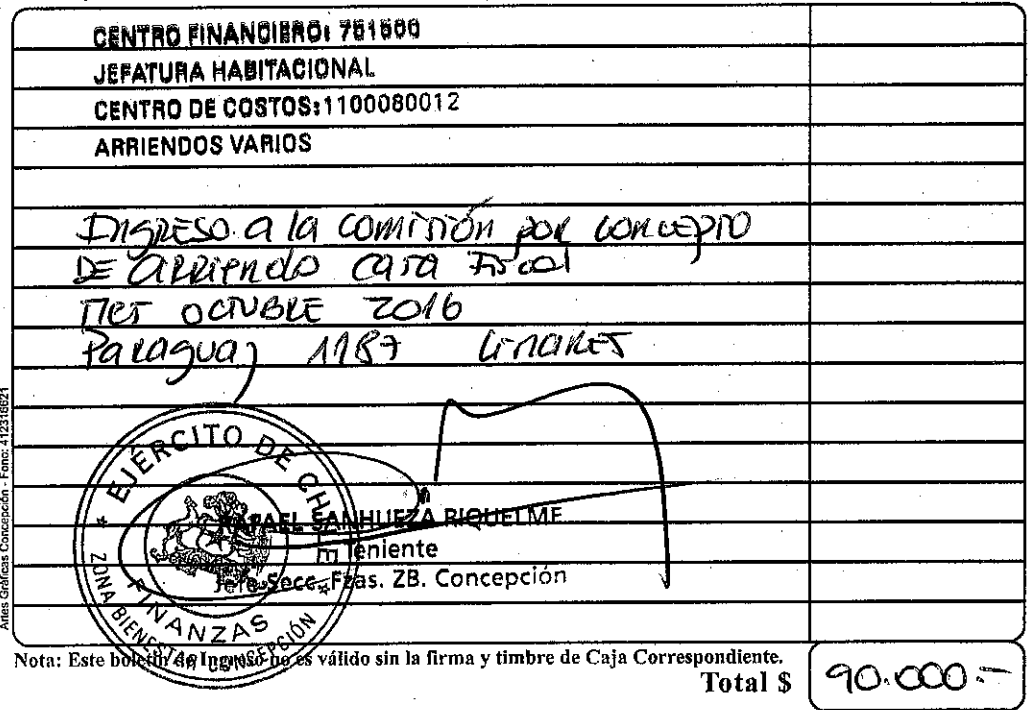 CENTRO FINANCIERO: 751500
JEFATURA HABITACIONAL
CENTRO DE COSTOS:1100080012
ARRIENDOS VARIOS
Ingreso a la comisión por concepto
de arriendo casa fiscal
mes octubre 2016
Paraguay 1187 Linares
EJÉRCITO DE CHILE
FINANZAS
ZONA BIENESTAR CONCEPCIÓN
RAFAEL SANHUEZA RIQUELME
Teniente
Jefe Secc. Fzas. ZB. Concepción
Artes Gráficas Concepción - Fono: 412316621
Nota: Este boletín de Ingreso no es válido sin la firma y timbre de Caja Correspondiente.
Total $ 90.000.-